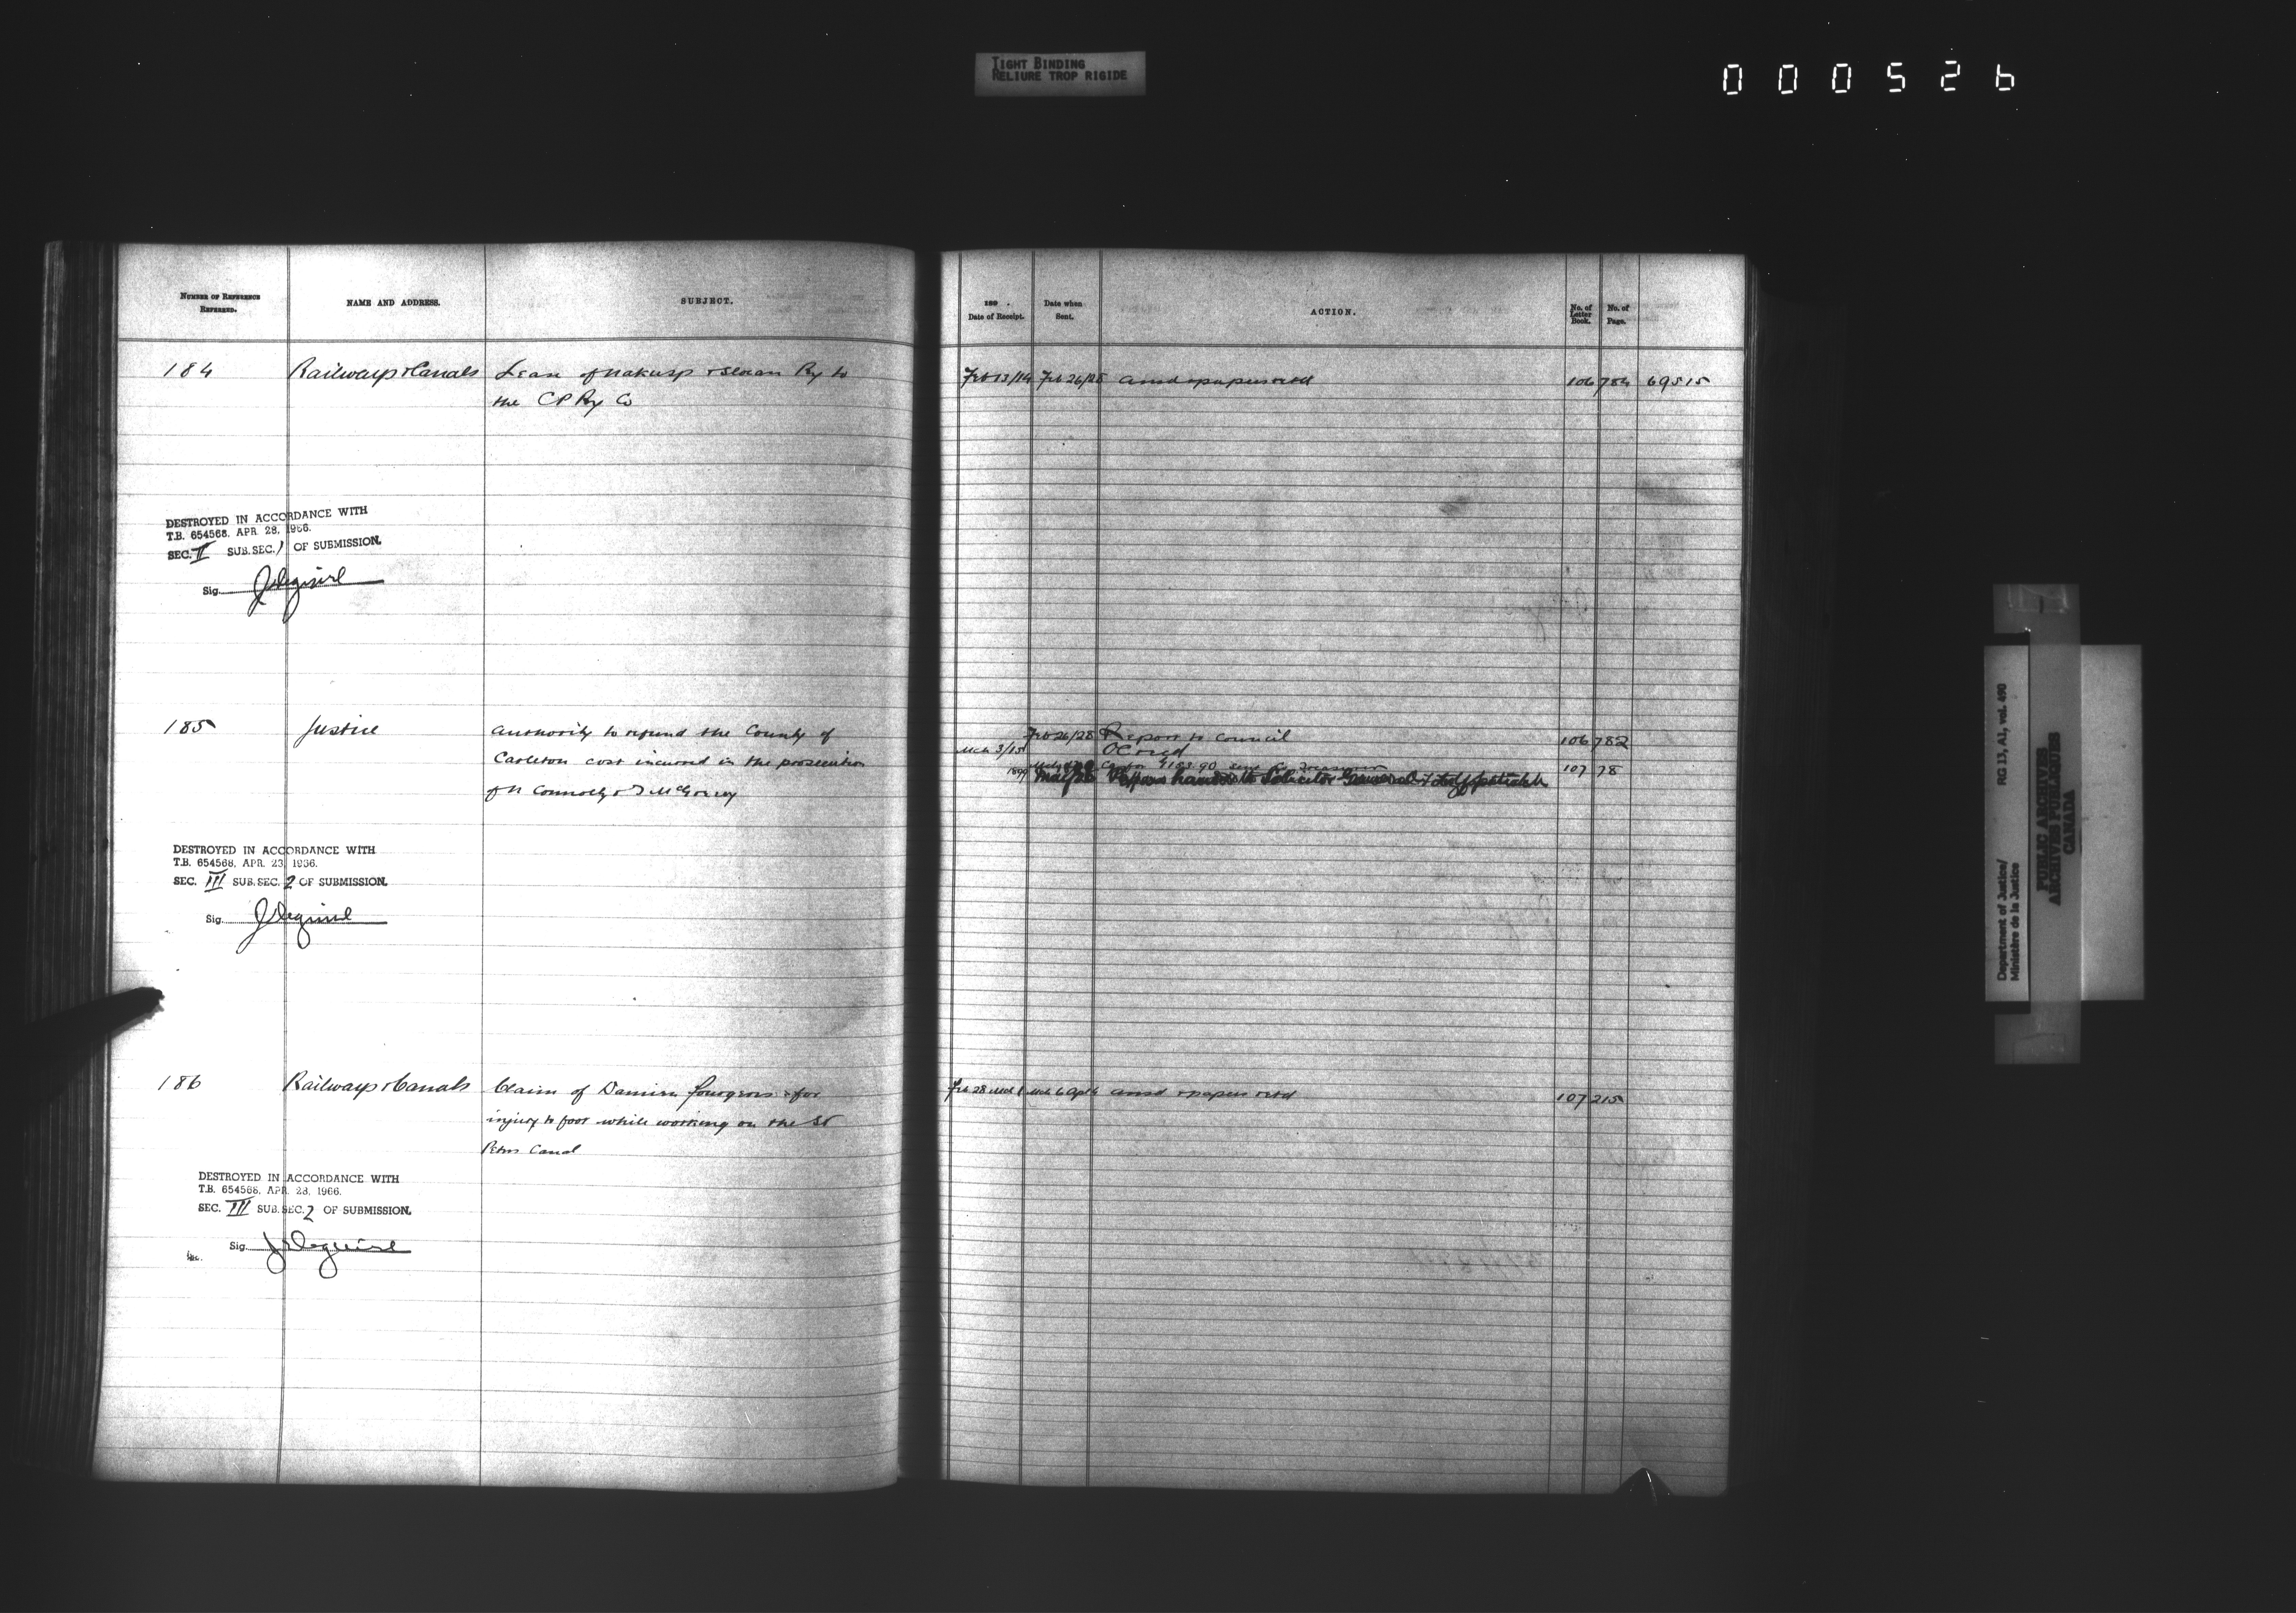 TIGHT BINDING
RELIURE TROP RIGIDE
000526
NUMBER OF REFERENCE
REFERRED.
NAME AND ADDRESS.
SUBJECT.
189 .
Date of Receipt.
Date when
Sent.
ACTION.
No. of
Letter
Book.
No. of
Page.
184 Railways & Canals Lease of Nakusp & Slocan Ry to
the C P Ry Co
Feb 13/14 Feb 26/28 ansd & papers retd 106 784 69515
DESTROYED IN ACCORDANCE WITH
T.B. 654568, APR. 28, 1966.
SEC. II SUB. SEC. 1 OF SUBMISSION.
Sig.
185 Justice Authority to refund the County of
Carleton cost incurred in the prosecution
of N Connolly &
Feb 26/28 Report to Council 106 782
Mch 3/15 OC recd
$183.90 107 78
1899 May 26 Papers handed to Solicitor General
DESTROYED IN ACCORDANCE WITH
T.B. 654568, APR. 28, 1966.
SEC. III SUB. SEC. 2 OF SUBMISSION.
Sig.
186 Railways & Canals Claim of Damien for
injury to foot while working on the St
Peters Canal
Feb 28 Mch 1 Mch 6 Apl 4 ansd & papers retd 107 215
DESTROYED IN ACCORDANCE WITH
T.B. 654568, APR. 28, 1966.
SEC. III SUB. SEC. 2 OF SUBMISSION.
Sig.
Department of Justice/
Ministère de la Justice
RG 13, A1, vol. 490
PUBLIC ARCHIVES
ARCHIVES PUBLIQUES
CANADA